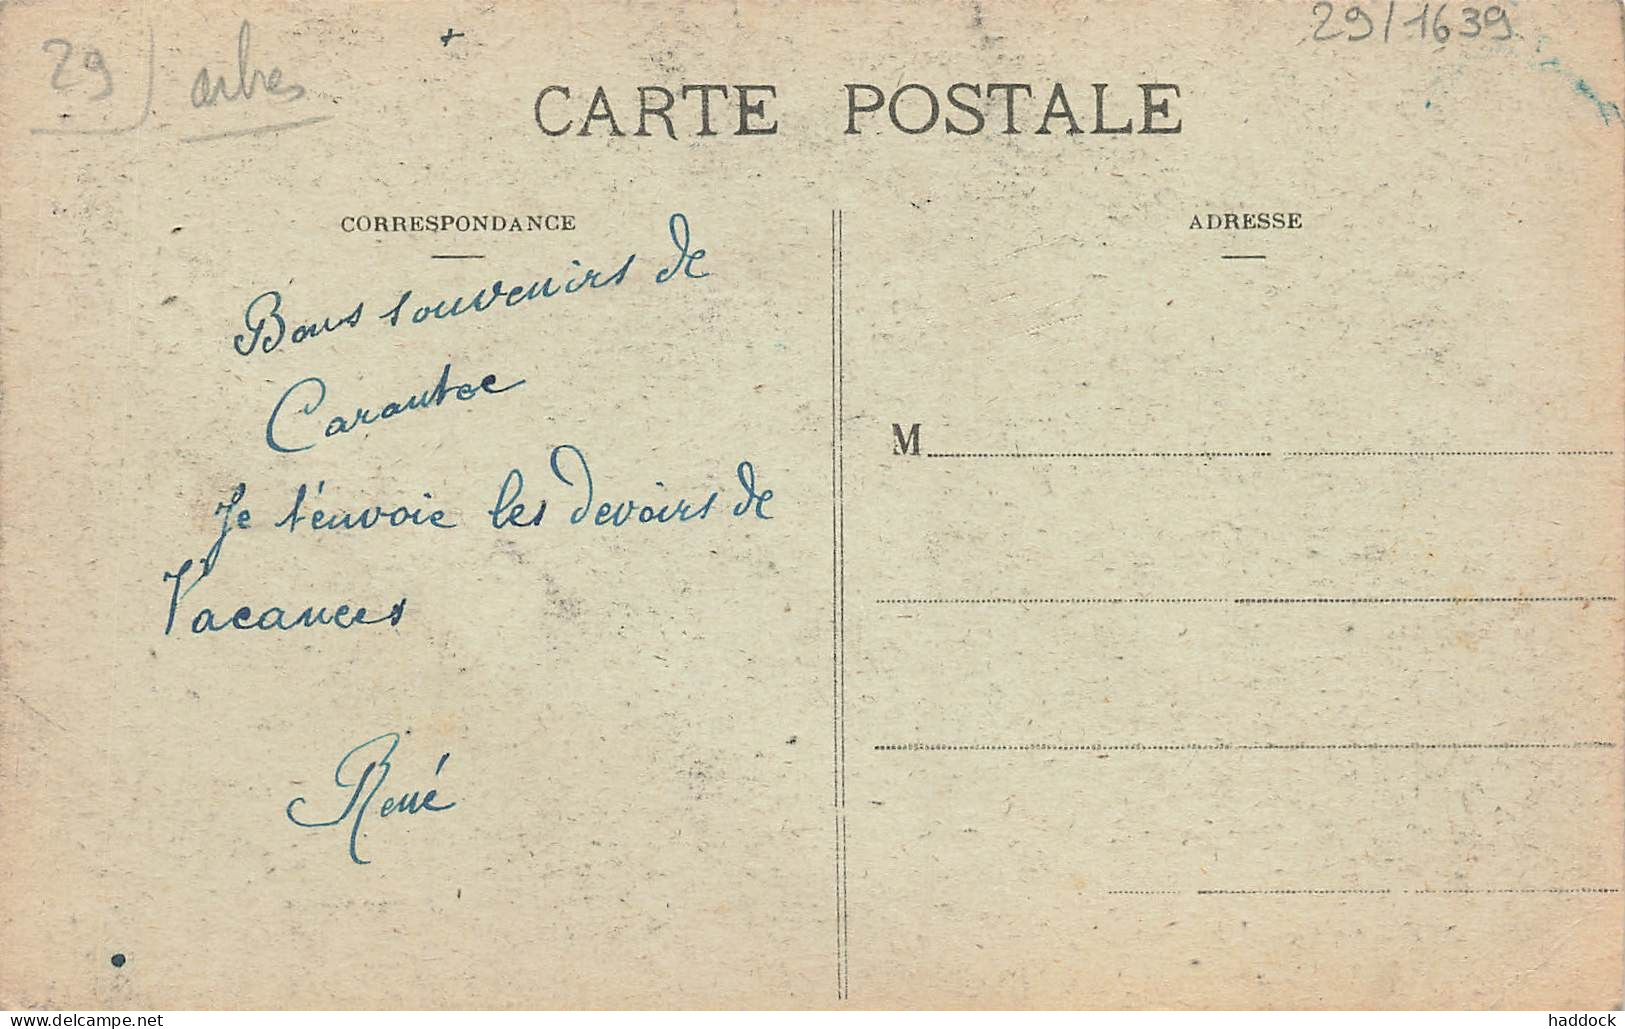 29/1639
29) arbres
CARTE POSTALE
CORRESPONDANCE
ADRESSE
Bons souvenirs de
Carantec
Je t'envoie les devoirs de
Vacances
René
M
www.delcampe.net
haddock